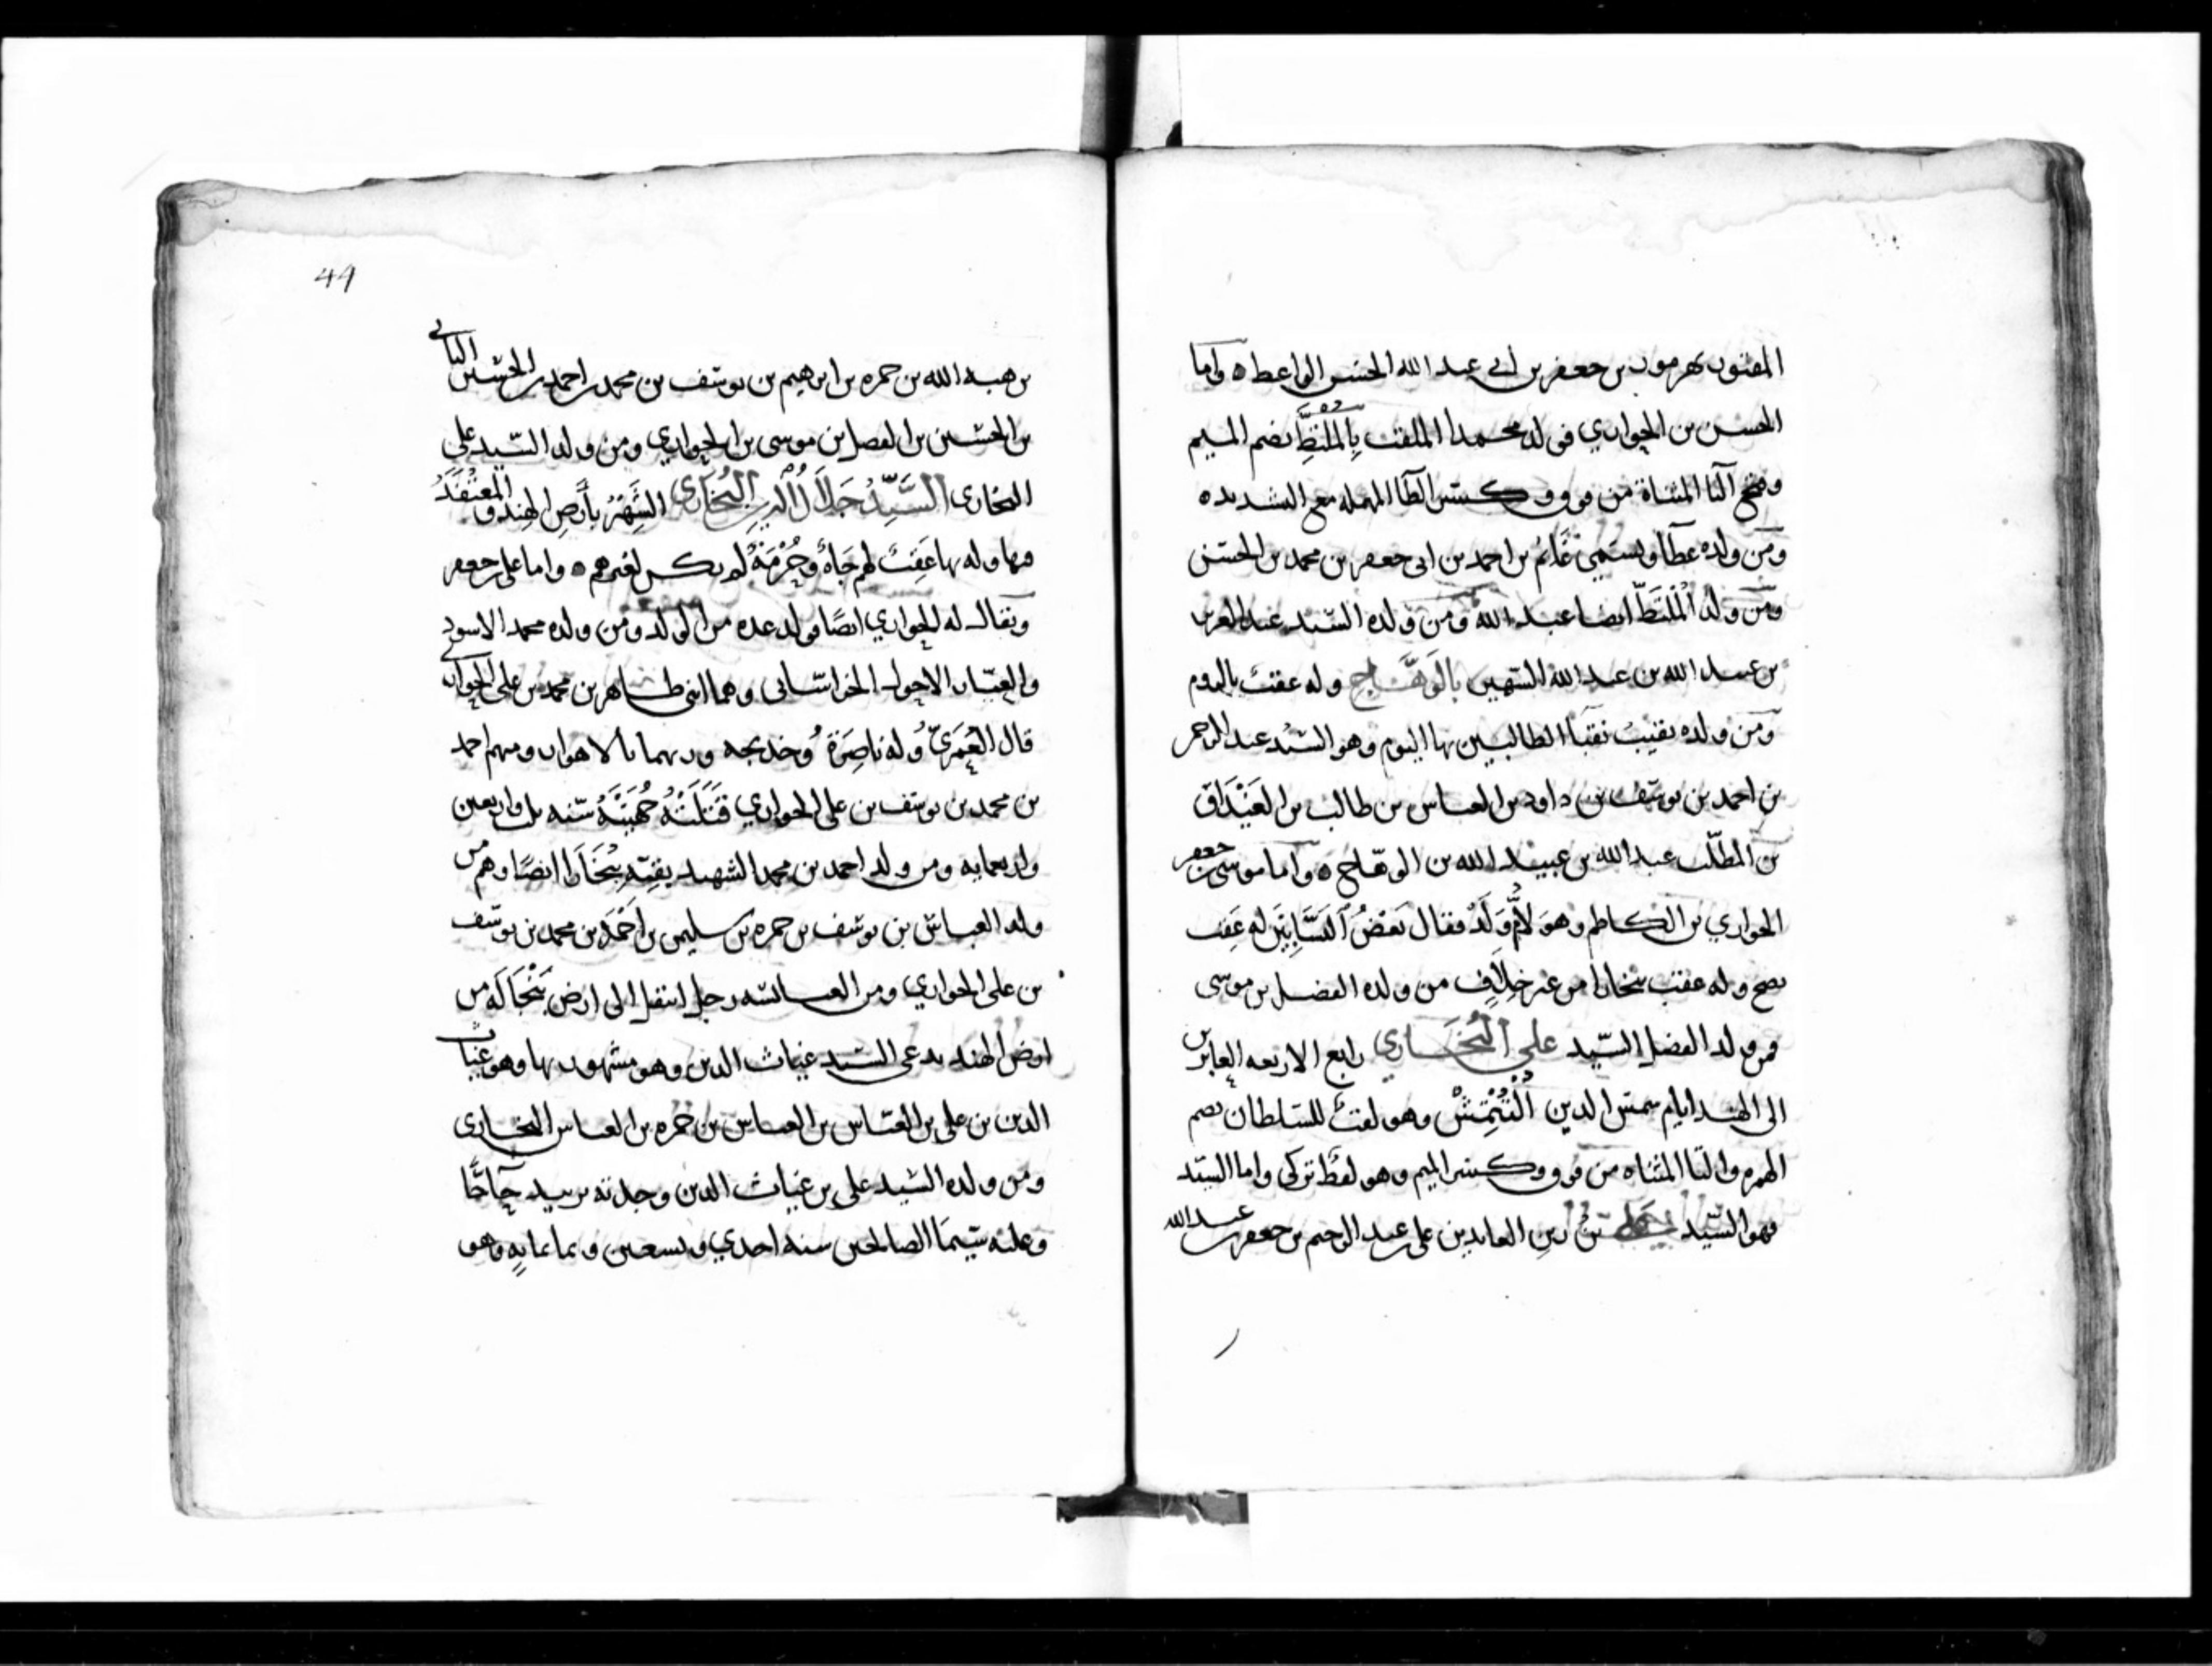 المقتول بهرموز بن جعفر بن أبي عبد الله الحسين الواعظ ه واما
الحسن بن الحواري فولد محمدا الملقب بِالمُلْتَطِّ بضم الميم
وفتح التا المثناة من فوق وكسر الطا المهمله مع التشديد ه
ومن ولده عطا ويسمى غَانمُ بن احمد بن ابي جعفر بن محمد بن الحسن
ومن ولد المُلْتَطِّ ايضا عبد الله ومن ولده السّيد عبد العزيز
بن عبد الله بن عبد الله الشهير بالوَهَّاج وله عقبٌ باليوم
ومن ولده نقيبُ نقبَا الطالبيين بها اليوم وهو السّيد عبد الرحمن
بن احمد بن يوسف بن داود بن العباس بن طالب بن الغَيْدَاق
بن المطّلب عبد الله بن عبيد الله بن الوهّاج ه واما موسى بن جعفر
الحواري بن الكاظم وهو لأُمِّ وَلَدْ فقال بَعْضُ النسَّابِين له عَقِب
يصح وله عقب ببخارا من غير خِلَافٍ من ولده الفضل بن موسى
فمن ولد الفضل السّيد علي البُخَاري رابع الاربعه العابرين
الى الهند ايام شمس الدين الْتُتْمِشْ وهو لقبٌ للسلطان بضم
الهمزه والتا المثناه من فوق وكسر الميم وهو لفظ تركي واما السّيد
فهو السّيد بن زين العابدين علي بن عبد الرحيم بن جعفر بن عبد الله
44
بن هبه الله بن حمزه بن ابرهيم بن يوسف بن محمد بن احمد بن الحسين الثاني
بن الحسين بن الفضل بن موسى بن الحواري ومن ولد السّيد علي
البخاري السَّيّدُ جَلاَلُ الدين البُخَاري الشَّهيْرُ بأَرضِ الهند والمُعْتَقَدُ
فيها وله بها عَقِبٌ لهم جَاهٌ وحُرْمَةٌ لم يكن لغيرهم ه واما علي بن جعفر
ويقال له الحواري ايضًا فولد عده من الولد ومن ولده محمد الاسود
والعبّاس الاحول الخراساني وهما ابني طاهر بن محمد بن علي الحواري
قال العُمَرِيّ وله ناصِرَة وخديجه وربهما بالاهواز ومنهم احمد
بن محمد بن يوسف بن علي الحواري قَتَلَتْهُ جُهَيْنَةُ سنه ثلث واربعين
واربعمايه ومن ولد احمد بن محمد الشهيد بقيّته ببُخَارَا ايضًا وهم من
ولد العباس بن يوسف بن حمزه بن سليمن بن احْمَدْ بن محمد بن يوسف
بن علي الحواري ومن العباسيه رجل انتقل الى ارض بَنْجَالَه من
ارض الهند يدعى السّيد غياث الدين وهو مشهور بها وهو غياث
الدين بن علي بن العبّاس بن العباس بن حمزه بن العباس البخاري
ومن ولده السّيد علي بن غياث الدين وجدته بزبيد حَاجًّا
وعليه سِيمَا الصالحين سنه احدي وتسعين وثمانمايه وهو